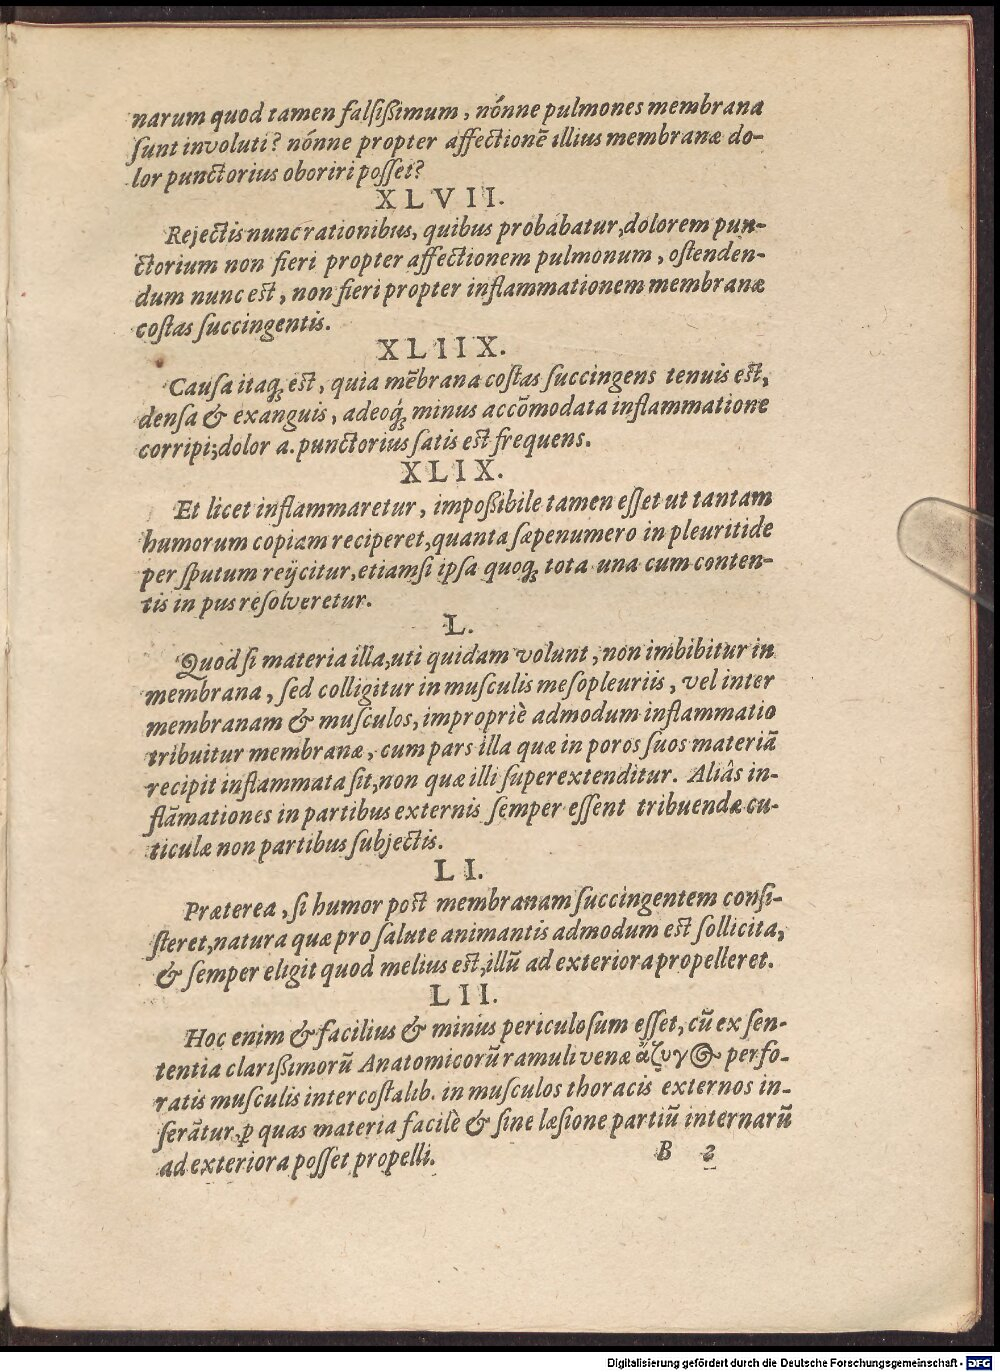 narum quod tamen falſiſſimum, nónne pulmones membrana
ſunt involuti? nónne propter affectionẽ illius membranæ do-
lor punctorius oboriri poſſet?
XLVII.
Rejectis nunc rationibus, quibus probabatur, dolorem pun-
ctorium non fieri propter affectionem pulmonum, oſtenden-
dum nunc est, non fieri propter inflammationem membranæ
coſtas ſuccingentis.
XLIIX.
Cauſa itaq́; est, quia mẽbrana coſtas ſuccingens tenuis est,
denſa & exanguis, adeoq́; minus accõmodata inflammatione
corripi; dolor a. punctorius ſatis est frequens.
XLIX.
Et licet inflammaretur, impoßibile tamen eſſet ut tantam
humorum copiam reciperet, quanta ſæpenumero in pleuritide
per ſputum reijcitur, etiamſi ipſa quoq; tota una cum conten-
tis in pus reſolveretur.
L.
Quod ſi materia illa, uti quidam volunt, non imbibitur in
membrana, ſed colligitur in muſculis meſopleuriis, vel inter
membranam & muſculos, impropriè admodum inflammatio
tribuitur membranæ, cum pars illa quæ in poros ſuos materiã
recipit inflammata ſit, non quæ illi ſuperextenditur. Aliâs in-
flãmationes in partibus externis ſemper eſſent tribuendæ cu-
ticulæ non partibus ſubjectis.
LI.
Præterea, ſi humor post membranam ſuccingentem conſi-
ſteret, natura quæ pro ſalute animantis admodum est ſollicita,
& ſemper eligit quod melius est, illũ ad exteriora propelleret.
LII.
Hoc enim & facilius & minus periculoſum eſſet, cũ ex ſen-
tentia clarißimorũ Anatomicorũ ramuli venæ ἄζυγȣ perfo-
ratis muſculis intercoſtalib. in muſculos thoracis externos in-
ſerãtur, ꝑ quas materia facilè & ſine læſione partiũ internarũ
ad exteriora poſſet propelli.
B 2
Digitalisierung gefördert durch die Deutsche Forschungsgemeinschaft - DFG